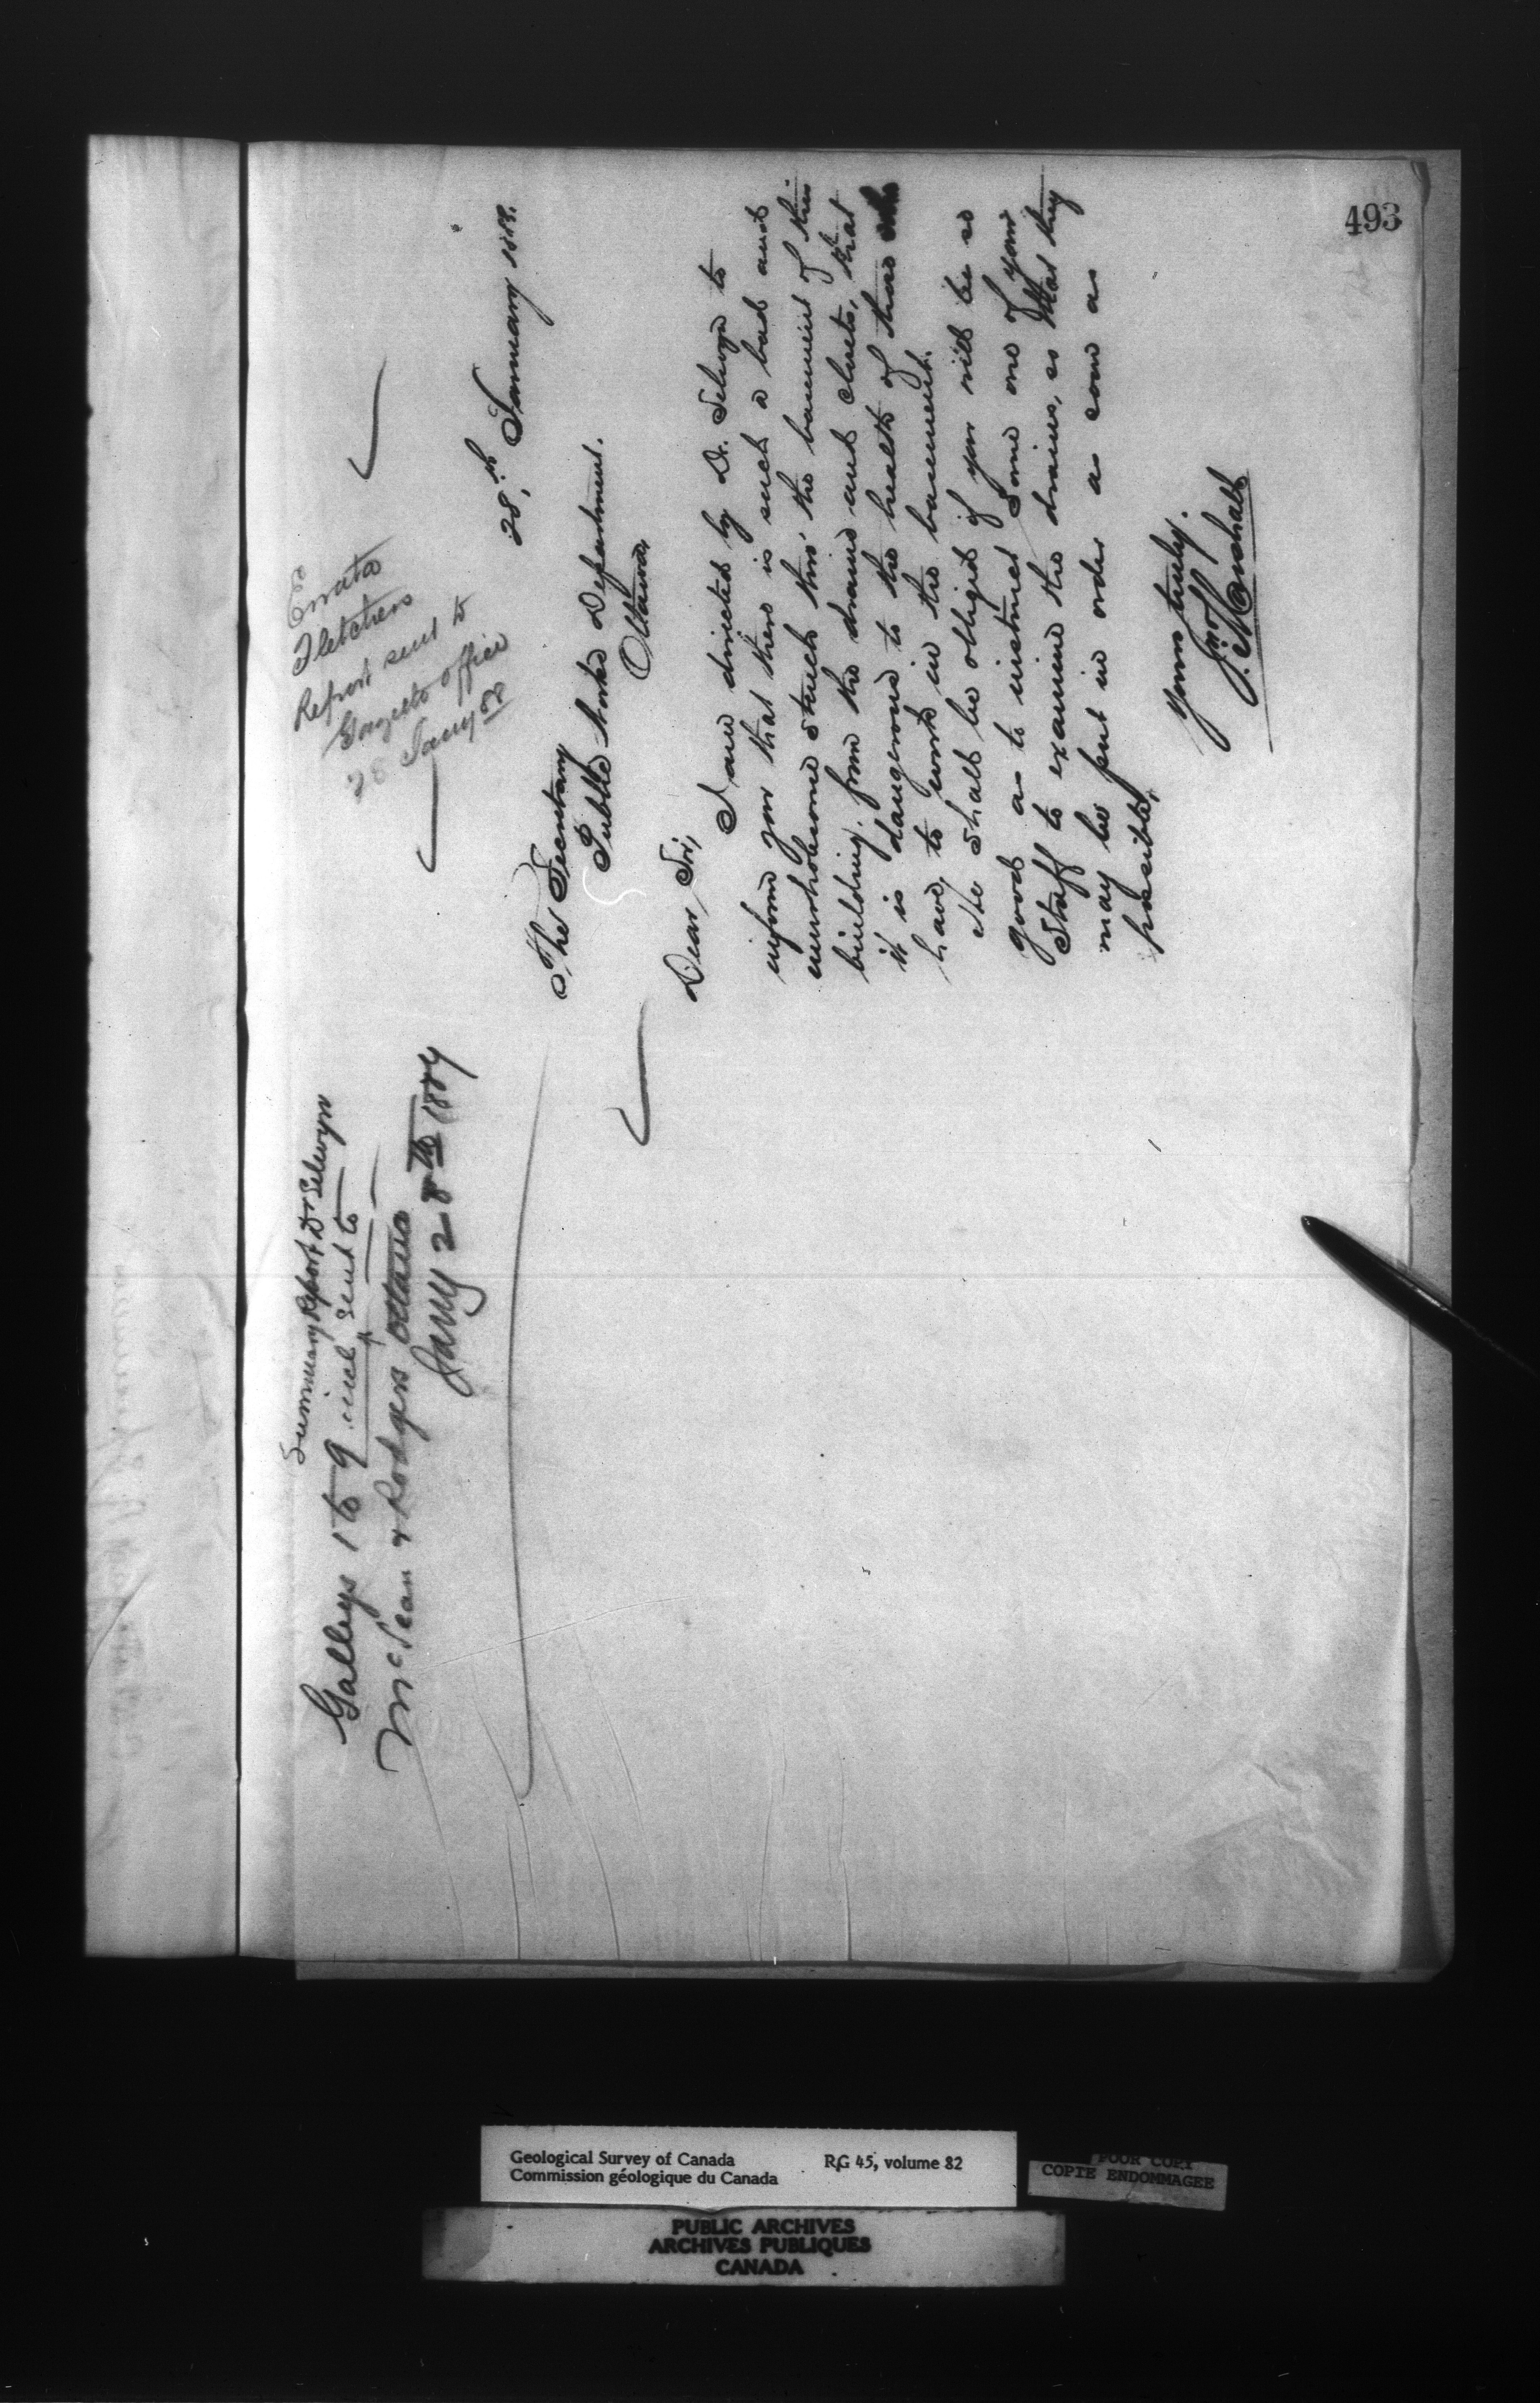 493
Summary Report Dr Selwyn
Galleys 1 to 9 incl sent to
McLean & Rodgers Ottawa
Jany 28th 1884
Errata
Fletchers
Report sent to
Gazette office
28 Jany 88
28th January 1888.
The Secretary
Public Works Department.
Ottawa,
Dear Sir,
I am directed by Dr. Selwyn to
inform you that there is such a bad and
unwholesome stench thro' the basement of this
building, from the drains and closets, that
it is dangerous to the health of those who
have to work in the basement.
We shall be obliged if you will be so
good as to instruct some one of your
Staff to examine the drains, so that they
may be put in order as soon as
possible,
Yours truly.
Jno. Marshall
Geological Survey of Canada RG 45, volume 82
Commission géologique du Canada
POOR COPY
COPIE ENDOMMAGEE
PUBLIC ARCHIVES
ARCHIVES PUBLIQUES
CANADA